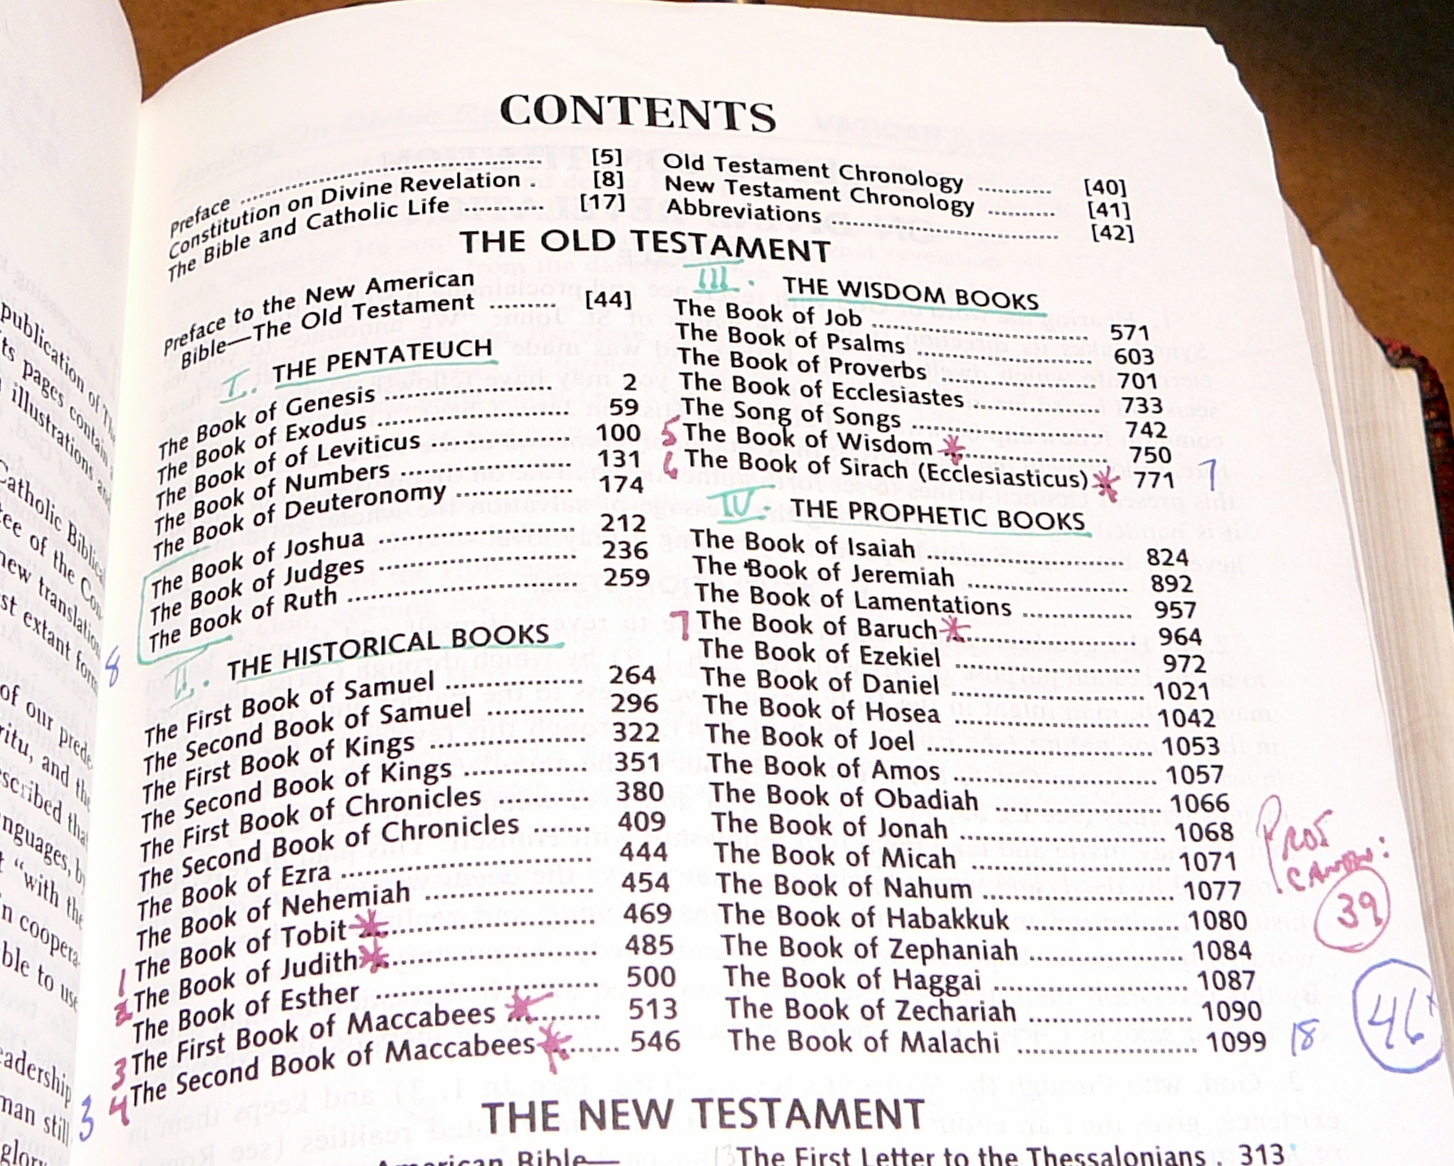 CONTENTS
Preface ........ [5]
Constitution on Divine Revelation . [8]
The Bible and Catholic Life ........ [17]
Old Testament Chronology ........ [40]
New Testament Chronology ........ [41]
Abbreviations ........ [42]
THE OLD TESTAMENT
Preface to the New American
Bible—The Old Testament ........ [44]
I. THE PENTATEUCH
The Book of Genesis ........ 2
The Book of Exodus ........ 59
The Book of of Leviticus ........ 100
The Book of Numbers ........ 131
The Book of Deuteronomy ........ 174
The Book of Joshua ........ 212
The Book of Judges ........ 236
The Book of Ruth ........ 259
8
II. THE HISTORICAL BOOKS
The First Book of Samuel ........ 264
The Second Book of Samuel ........ 296
The First Book of Kings ........ 322
The Second Book of Kings ........ 351
The First Book of Chronicles ........ 380
The Second Book of Chronicles ........ 409
The Book of Ezra ........ 444
The Book of Nehemiah ........ 454
1 The Book of Tobit * ........ 469
2 The Book of Judith * ........ 485
The Book of Esther ........ 500
3 The First Book of Maccabees * ........ 513
4 The Second Book of Maccabees * ........ 546
3
III. THE WISDOM BOOKS
The Book of Job ........ 571
The Book of Psalms ........ 603
The Book of Proverbs ........ 701
The Book of Ecclesiastes ........ 733
The Song of Songs ........ 742
5 The Book of Wisdom * ........ 750
6 The Book of Sirach (Ecclesiasticus) * .. 771 7
IV. THE PROPHETIC BOOKS
The Book of Isaiah ........ 824
The Book of Jeremiah ........ 892
The Book of Lamentations ........ 957
7 The Book of Baruch * ........ 964
The Book of Ezekiel ........ 972
The Book of Daniel ........ 1021
The Book of Hosea ........ 1042
The Book of Joel ........ 1053
The Book of Amos ........ 1057
The Book of Obadiah ........ 1066
The Book of Jonah ........ 1068
The Book of Micah ........ 1071
The Book of Nahum ........ 1077
The Book of Habakkuk ........ 1080
The Book of Zephaniah ........ 1084
The Book of Haggai ........ 1087
The Book of Zechariah ........ 1090
The Book of Malachi ........ 1099 18
PROT
CANON:
39
46
THE NEW TESTAMENT
American Bible—
The First Letter to the Thessalonians . 313
publication of
its pages contain
illustrations and
Catholic Biblical
tee of the Con
new translation
st extant form
of our prede
ritu, and the
scribed that
nguages, by
"with the
n coopera-
ble to use
eadership
man still
glori